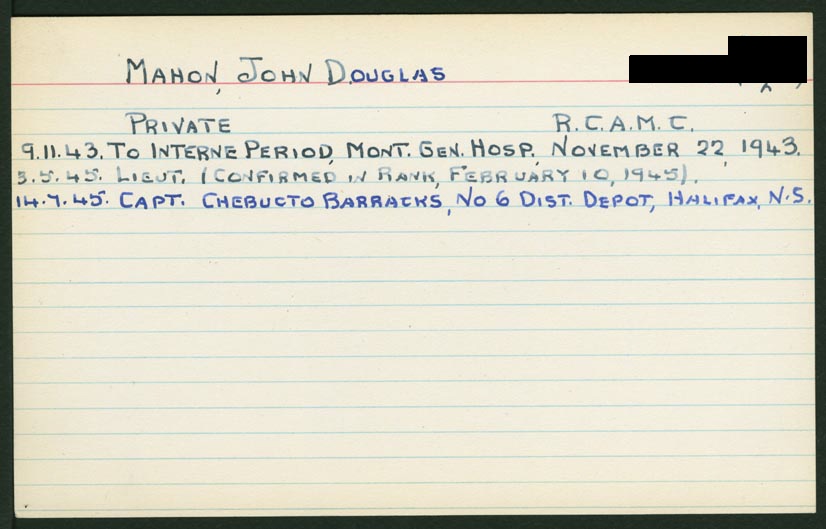 MAHON, JOHN DOUGLAS
PRIVATE R.C.A.M.C.
9.11.43. TO INTERNE PERIOD, MONT. GEN. HOSP., NOVEMBER 22, 1943.
3.5.45. LIEUT. (CONFIRMED IN RANK, FEBRUARY 10, 1945).
14.7.45. CAPT. CHEBUCTO BARRACKS, NO 6 DIST. DEPOT, HALIFAX, N.S.